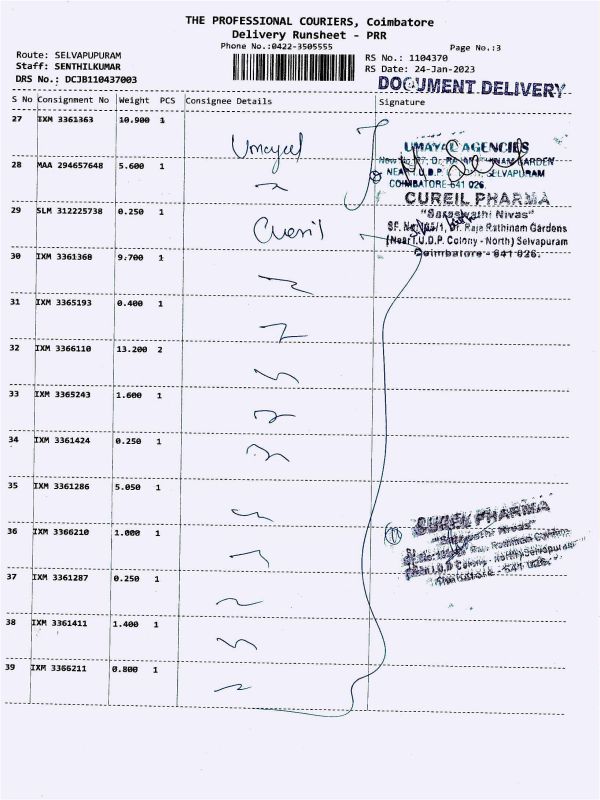 THE PROFESSIONAL COURIERS, Coimbatore
Delivery Runsheet - PRR
Phone No.:0422-3505555
Page No.:3
Route: SELVAPUPURAM
Staff: SENTHILKUMAR
DRS No.: DCJB110437003
RS No.: 1104370
RS Date: 24-Jan-2023
DOCUMENT DELIVERY
S No Consignment No Weight PCS Consignee Details Signature
27 IXM 3361363 10.900 1 Umayal
28 MAA 294657648 5.600 1
UMAYAL AGENCIES
NEAR T.U.D.P. SELVAPURAM
COIMBATORE-641 026.
29 SLM 312225738 0.250 1
CUREIL PHARMA
"Saraswathi Nivas"
SF. No. 105/1, Dr. Raja Rathinam Gardens
(Near T.U.D.P. Colony - North) Selvapuram
Coimbatore - 641 026.
30 IXM 3361368 9.700 1
31 IXM 3365193 0.400 1
32 IXM 3366110 13.200 2
33 IXM 3365243 1.600 1
34 IXM 3361424 0.250 1
35 IXM 3361286 5.050 1
36 IXM 3366210 1.000 1
11
PHARMA
37 IXM 3361287 0.250 1
38 IXM 3361411 1.400 1
39 IXM 3366211 0.800 1